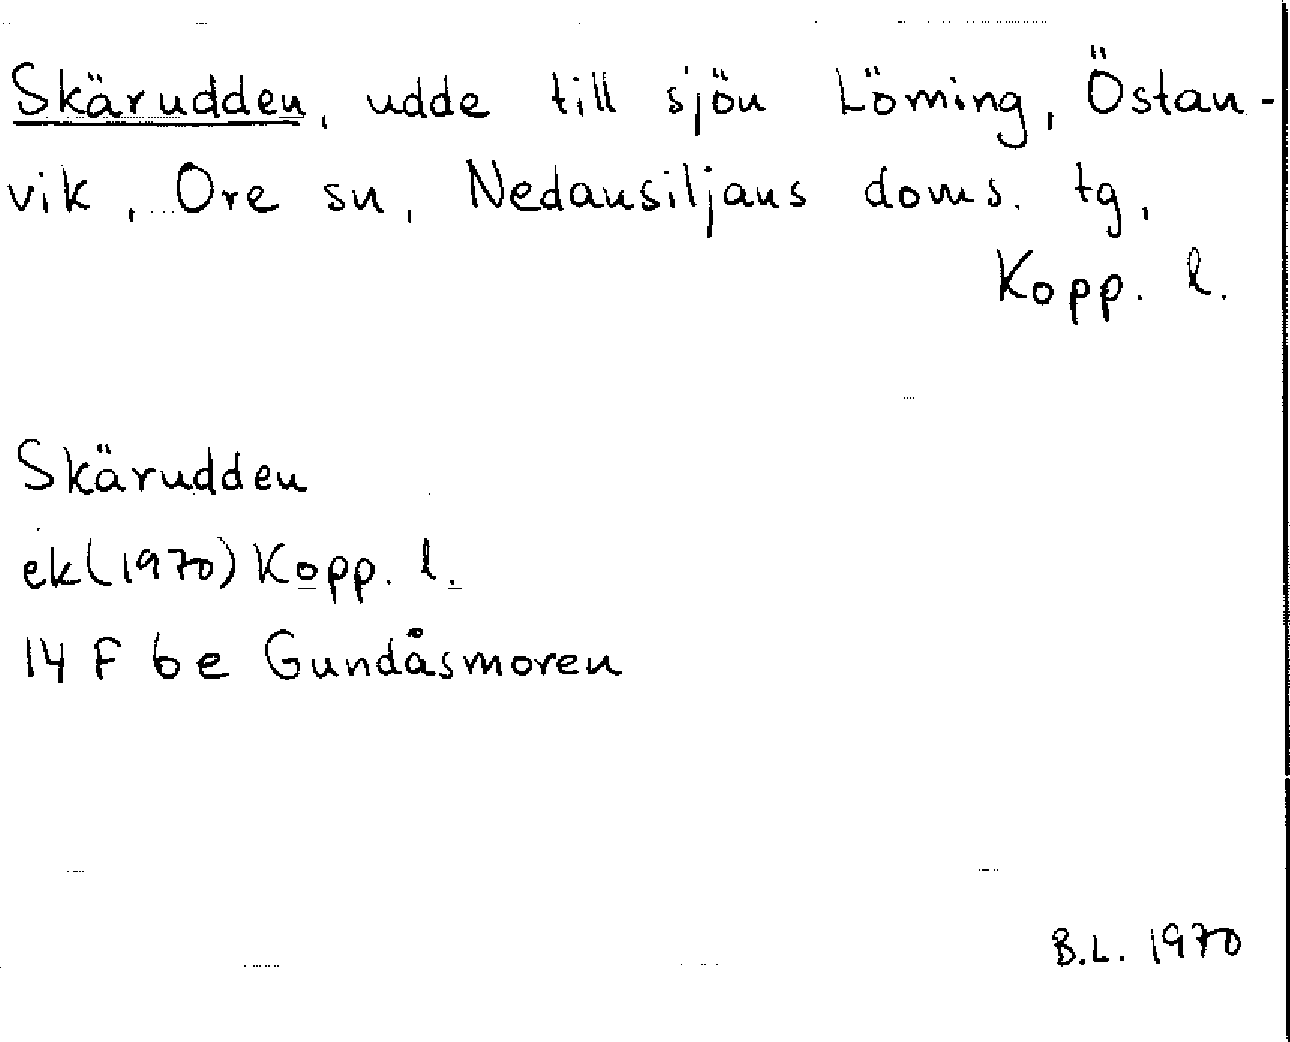 Skärudden, udde till sjön Löming, Östan-
vik, Ore sn, Nedansiljans doms. tg,
Kopp. l.
Skärudden
ek (1970) Kopp. l.
14 F 6e Gundåsmoren
B.L. 1970